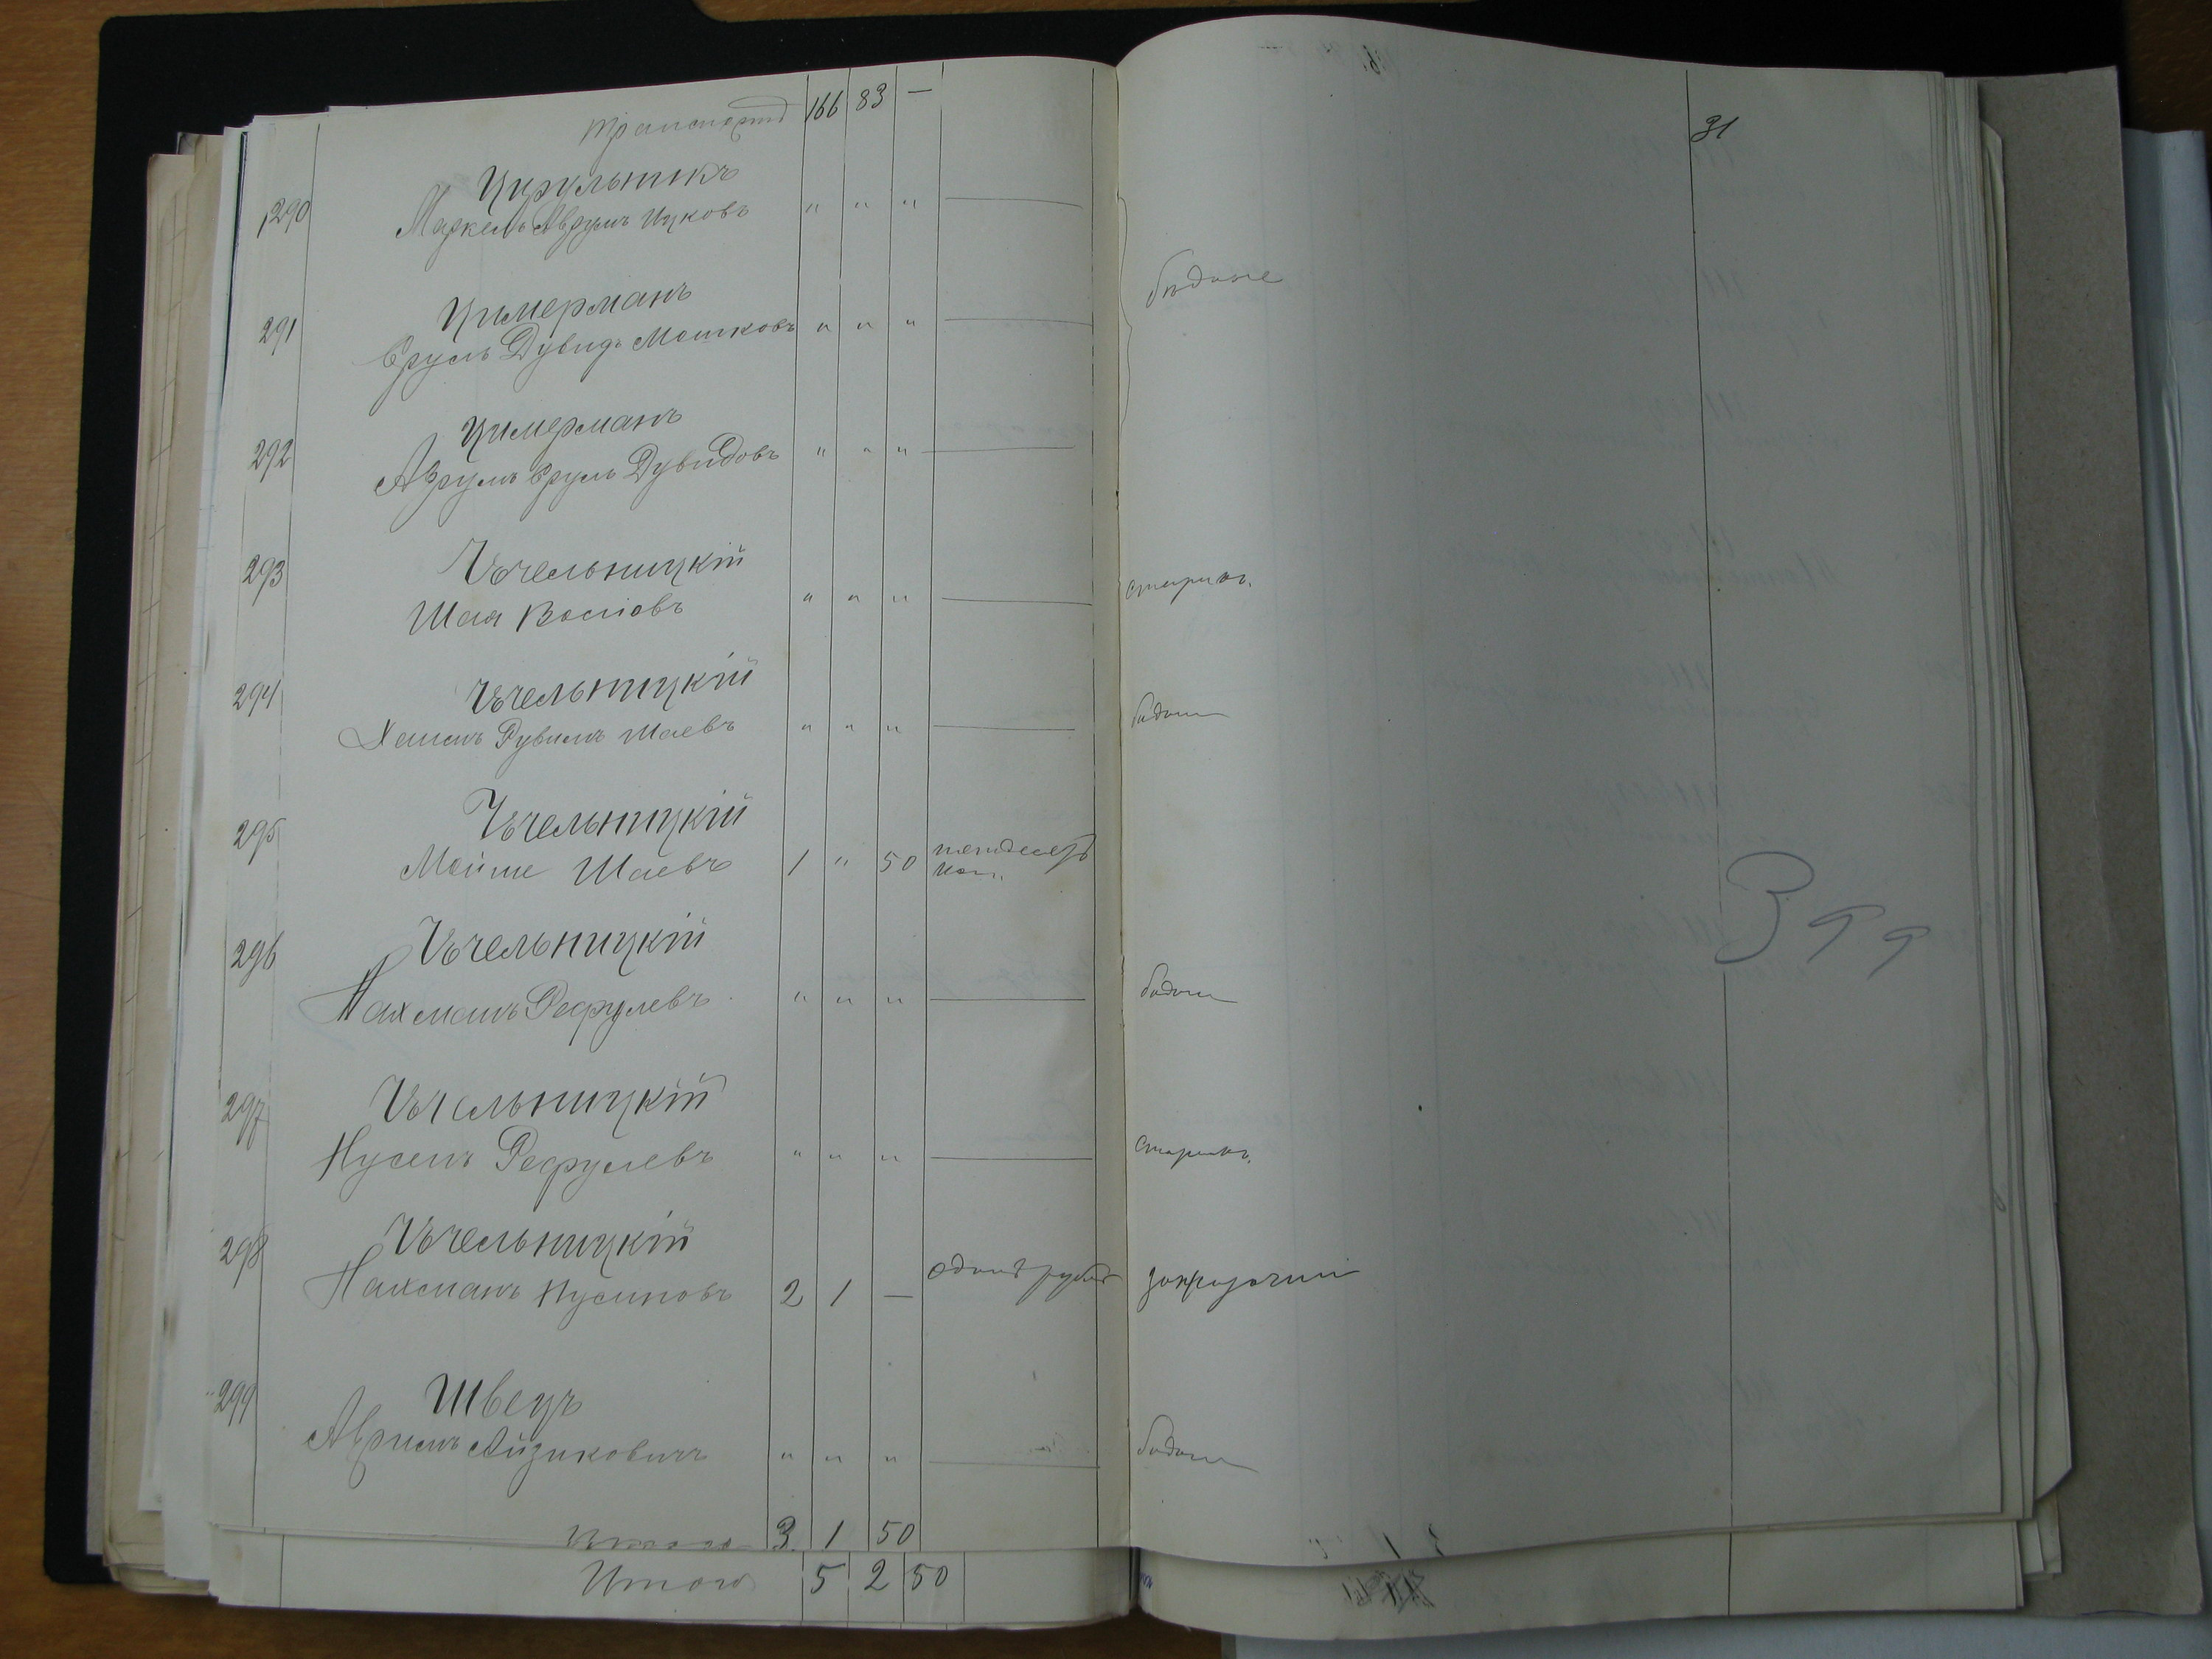 Транспортъ 166 83 —
31
290 Цирульникъ
Маркель Аврумъ Ицковъ " " " —
бѣдные
291 Цимерманъ
Сруль Дувидъ Мошковъ " " " —
292 Цимерманъ
Аврумъ Сруль Дувидовъ " " " —
293 Чечельницкій
Шая Восіовъ " " " — старикъ.
294 Чечельницкій
Рувимъ Шаевъ " " " — бѣдный
295 Чечельницкій
Мойше Шаевъ 1 " 50 пятьдесятъ
коп.
296 Чечельницкій
Нахманъ Рефулевъ " " " — бѣдный
399
297 Чечельницкій
Нусенъ Рефулевъ " " " — старикъ.
298 Чечельницкій
Нахманъ Нусиновъ 2 1 — одинъ рубль
299 Швецъ
Аврумъ Айзиковичъ " " " — бѣдный
Итого 3 1 50
Итого 5 2 50